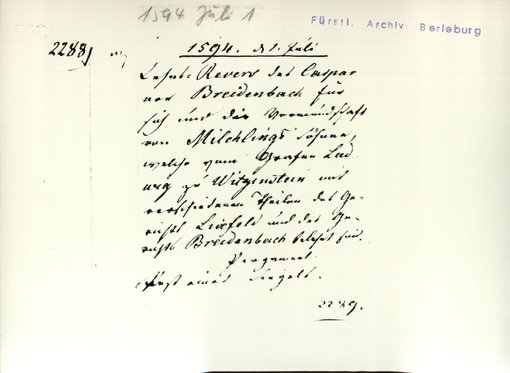 1594 Juli 1
Fürstl. Archiv Berleburg
2288)
1594. d 1. Juli
Lehns-Revers des Caspar
von Breidenbach für
sich und die Vormundschaft
von Milchlings Söhnen,
welche vom Grafen Lud
wig zu Witgenstein mit
verschiedenen Theilen des Ge-
richts Lixfeld und des Ge-
richts Breidenbach belehnt sind.
Pergament.
Rest eines Siegels.
2289.